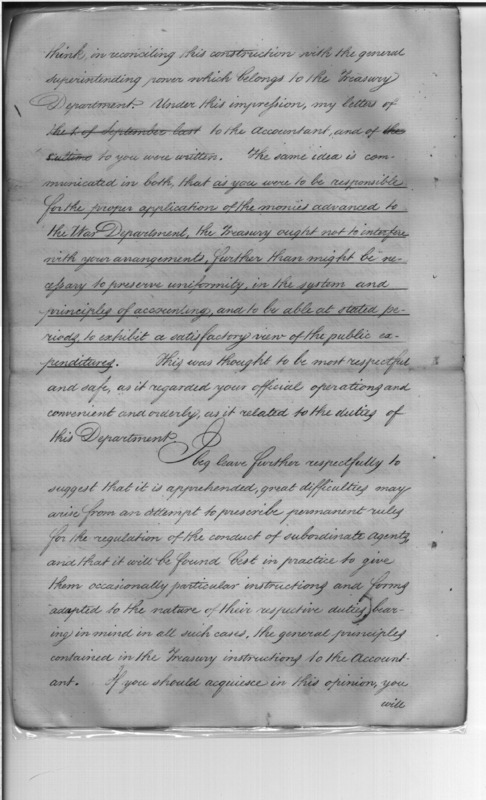 think, in reconciling this construction with the general
superintending power which belongs to the Treasury
Department. Under this impression, my letters of
the 1. of September last to the Accountant, and of the
to you were written. The same idea is com-
municated in both, that as you were to be responsible
for the proper application of the monies advanced to
the War Department, the Treasury ought not to interfere
with your arrangements, further than might be ne-
cessary to preserve uniformity, in the system and
principles of accounting, and to be able at stated pe-
riods, to exhibit a satisfactory view of the public ex-
penditures. This was thought to be most respectful
and safe, as it regarded your official operations, and
convenient and orderly, as it related to the duties of
this Department.
I beg leave further respectfully to
suggest that it is apprehended, great difficulties may
arise from an attempt to prescribe permanent rules
for the regulation of the conduct of subordinate Agents,
and that it will be found best in practice to give
them occasionally particular instructions and forms
adapted to the nature of their respective duties, bear-
ing in mind in all such cases, the general principles
contained in the Treasury instructions to the Account-
ant. If you should acquiesce in this opinion, you
will